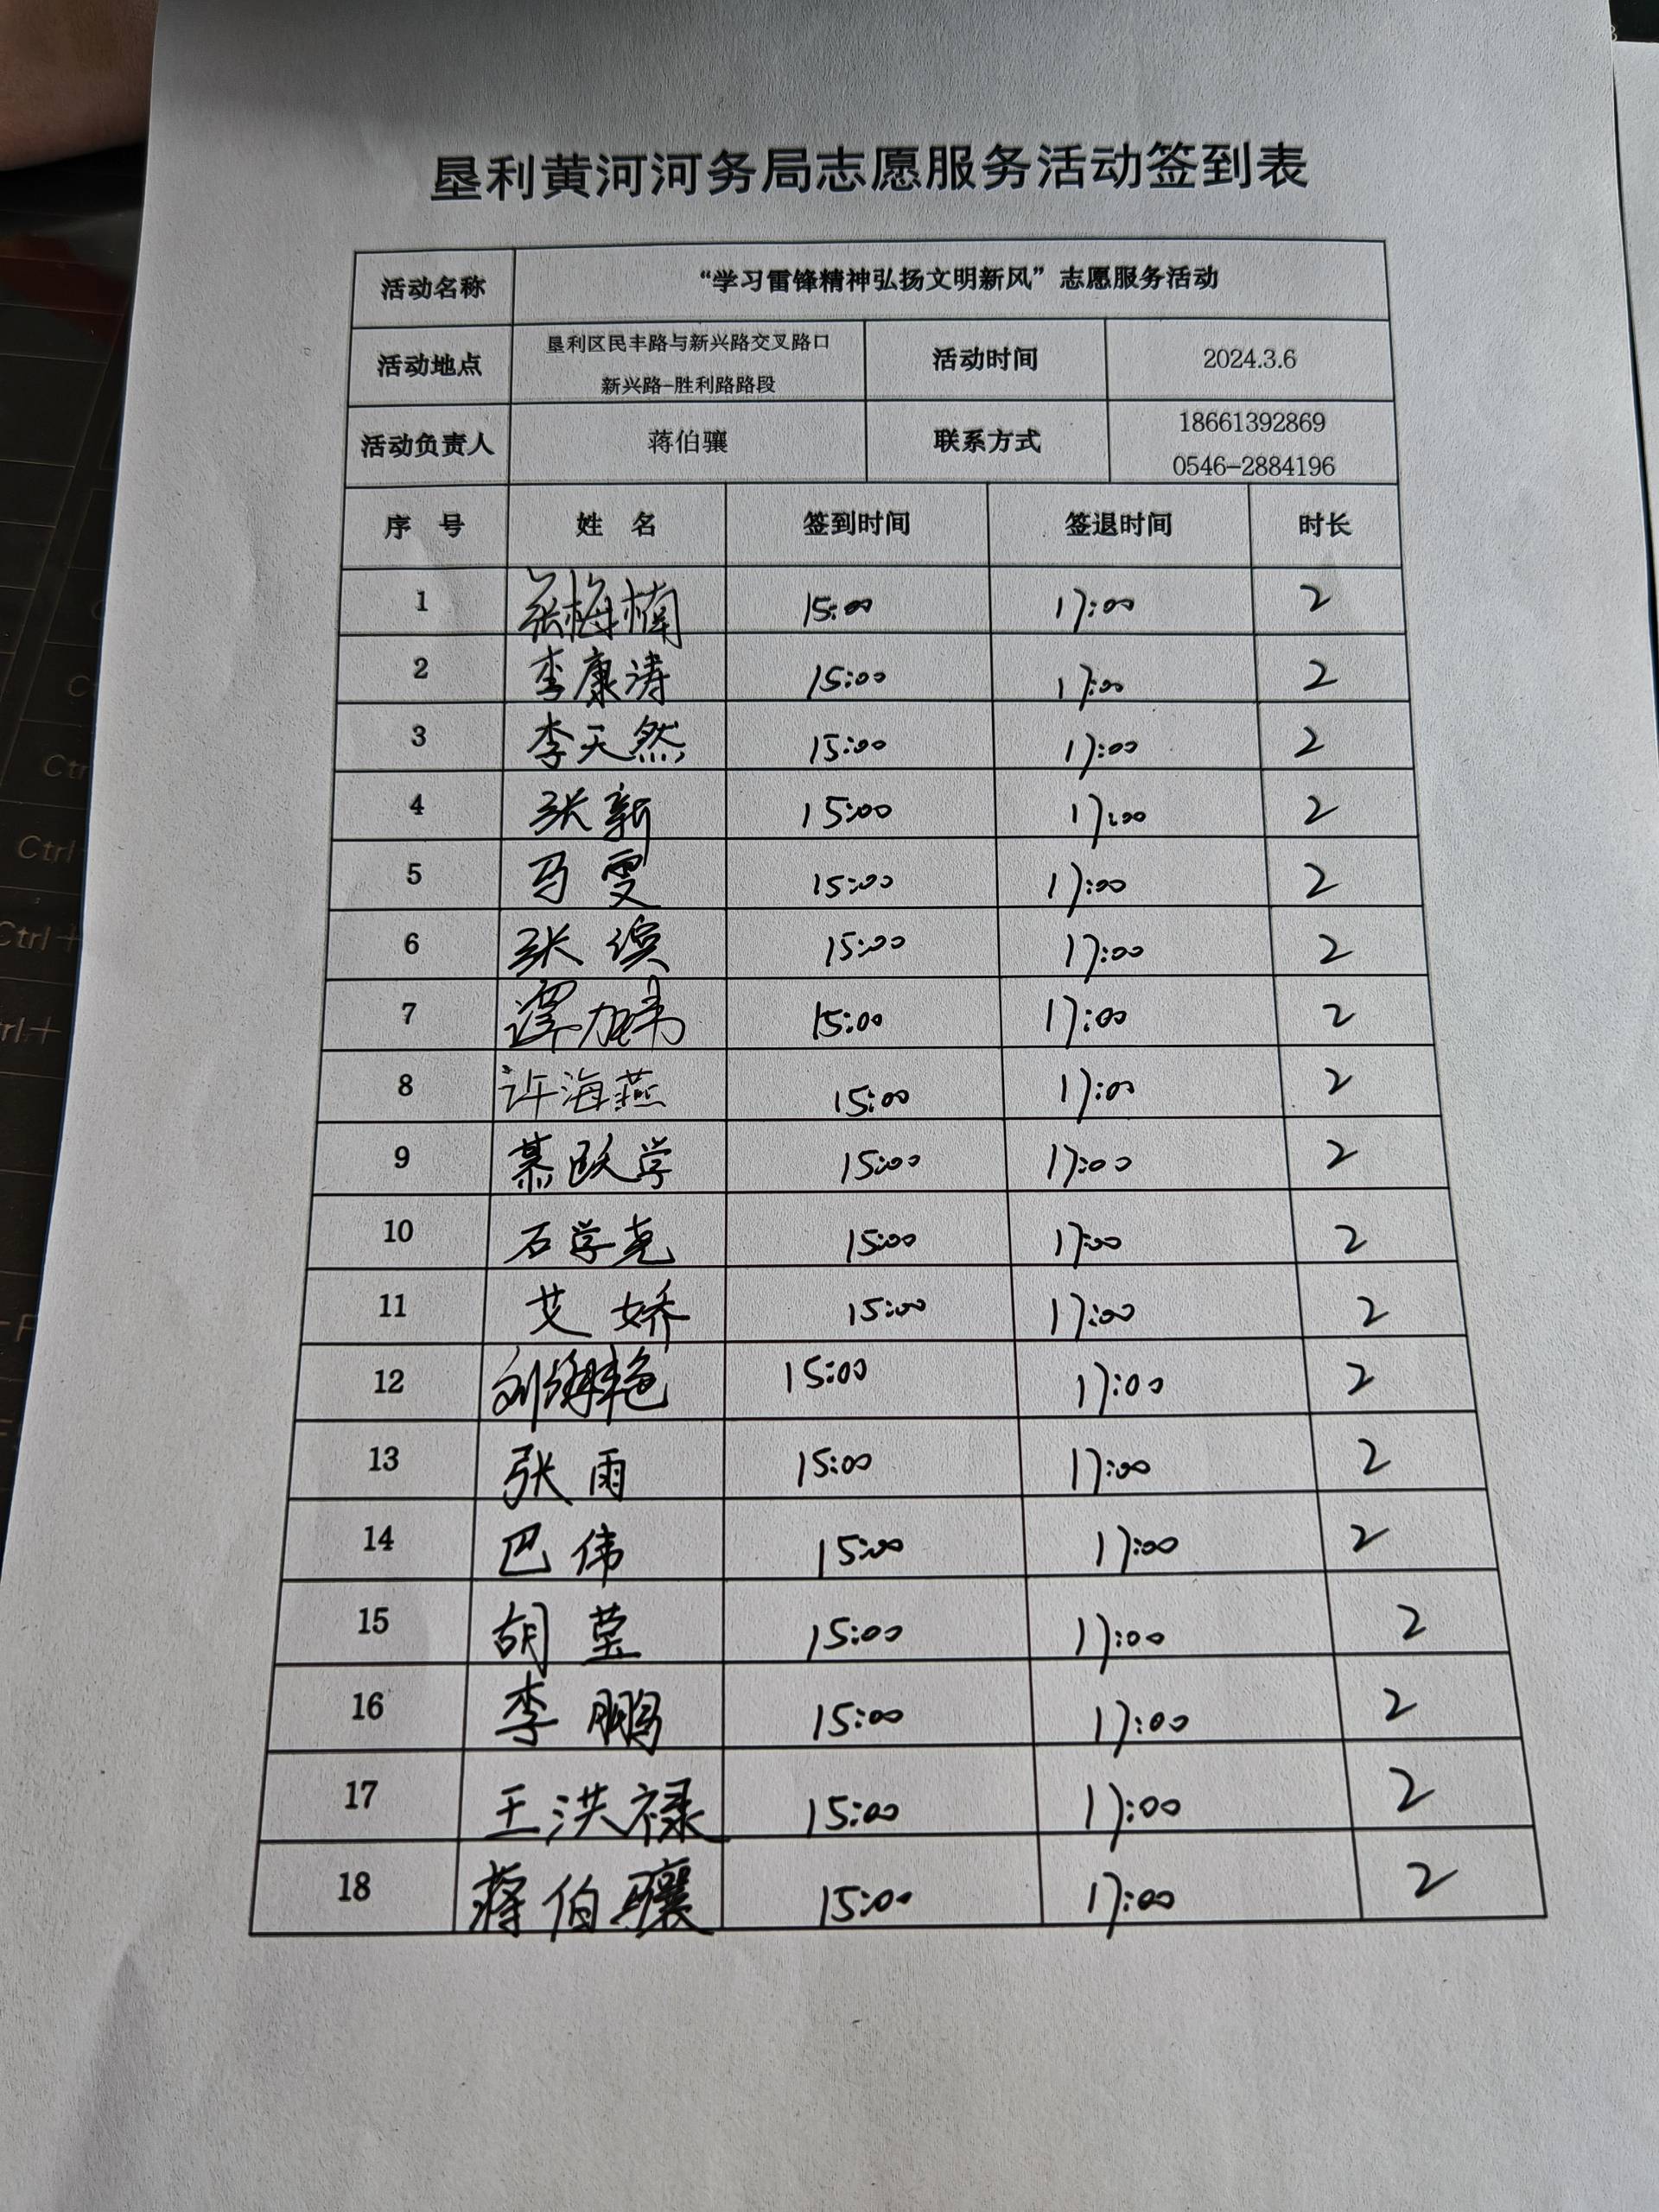 垦利黄河河务局志愿服务活动签到表
活动名称 “学习雷锋精神弘扬文明新风”志愿服务活动
活动地点 垦利区民丰路与新兴路交叉路口
新兴路-胜利路路段 活动时间 2024.3.6
活动负责人 蒋伯骧 联系方式 18661392869
0546-2884196
序 号 姓 名 签到时间 签退时间 时长
1 张梅楠 15:00 17:00 2
2 李康涛 15:00 17:00 2
3 李天然 15:00 17:00 2
4 张新 15:00 17:00 2
5 马雯 15:00 17:00 2
6 张 15:00 17:00 2
7 谭 15:00 17:00 2
8 许海燕 15:00 17:00 2
9 慕跃学 15:00 17:00 2
10 石学尧 15:00 17:00 2
11 艾娇 15:00 17:00 2
12 刘 15:00 17:00 2
13 张雨 15:00 17:00 2
14 巴伟 15:00 17:00 2
15 胡莹 15:00 17:00 2
16 李鹏 15:00 17:00 2
17 王洪禄 15:00 17:00 2
18 蒋伯骧 15:00 17:00 2
Ctrl
Ctrl+